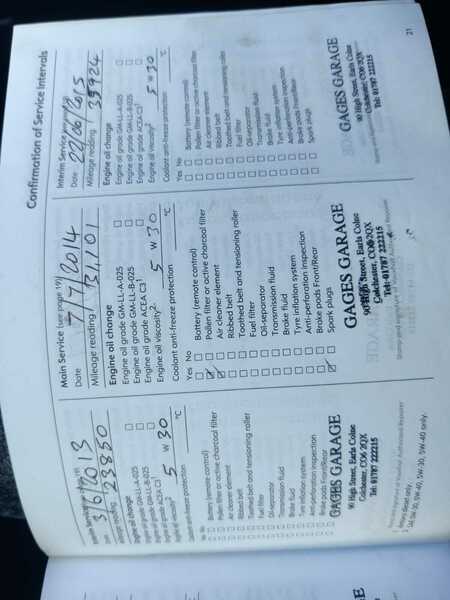 Confirmation of Service Intervals
3/6/2013
23850
Engine oil change
Engine oil grade GM-LL-A-025
Engine oil grade GM-LL-B-025
Engine oil grade ACEA C3¹
Engine oil viscosity² 5 W 30
Coolant anti-freeze protection °C
Yes No
Battery (remote control)
Pollen filter or active charcoal filter
Air cleaner element
Ribbed belt
Toothed belt and tensioning roller
Fuel filter
Oil-separator
Transmission fluid
Brake fluid
Tyre inflation system
Anti-perforation inspection
Brake pads Front/Rear
GAGES GARAGE
90 High Street, Earls Colne
Colchester, CO6 2QX
Tel: 01787 222215
Main Service (see page 19)
Date 7/7/2014
Mileage reading 31,101
Engine oil change
Engine oil grade GM-LL-A-025
Engine oil grade GM-LL-B-025
Engine oil grade ACEA C3¹
Engine oil viscosity² 5 W 30
Coolant anti-freeze protection °C
Yes No
Battery (remote control)
Pollen filter or active charcoal filter
Air cleaner element
Ribbed belt
Toothed belt and tensioning roller
Fuel filter
Oil-separator
Transmission fluid
Brake fluid
Tyre inflation system
Anti-perforation inspection
Brake pads Front/Rear
Spark plugs
GAGES GARAGE
90 High Street, Earls Colne
Colchester, CO6 2QX
Tel: 01787 222215
Interim Service
Date 22/06/2015
Mileage reading 39724
Engine oil change
Engine oil grade GM-LL-A-025
Engine oil grade GM-LL-B-025
Engine oil grade ACEA C3¹
Engine oil viscosity² 5 W 30
Coolant anti-freeze protection °C
Yes No
Battery (remote control)
Pollen filter or active charcoal filter
Air cleaner element
Ribbed belt
Toothed belt and tensioning roller
Fuel filter
Oil-separator
Transmission fluid
Brake fluid
Tyre inflation system
Anti-perforation inspection
Brake pads Front/Rear
Spark plugs
GAGES GARAGE
90 High Street, Earls Colne
Colchester, CO6 2QX
Tel: 01787 222215
21